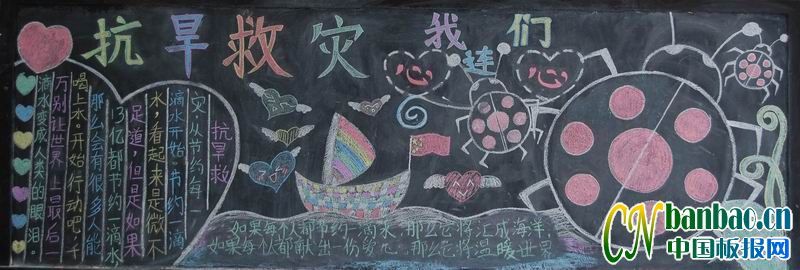 抗旱救灾
我们心连心
抗旱救
灾，从节约每一
滴水开始。节约一滴
水，看起来是微不
足道，但是如果
13亿都节约一滴水，
那么会有很多人能
喝上水。开始行动吧，千
万别让世界上最后一
滴水变成人类的眼泪。
如果每个人都节约一滴水，那么它将汇成海洋，
如果每个人都献出一份爱心，那么它将温暖世界
CNbanbao.cn
中国板报网